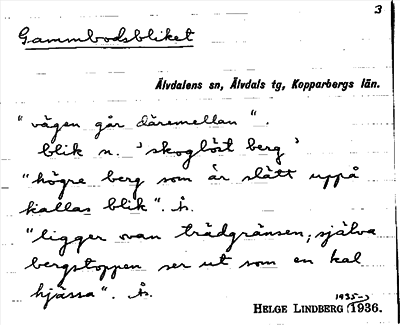 3
Gammbodsbliket
Älvdalens sn, Älvdals tg, Kopparbergs län.
"vägen går däremellan".
blik n. 'skoglöst berg'
"högre berg som är slätt uppå
kallas blik". h.
"ligger ovan trädgränsen; själva
bergstoppen ser ut som en kal
hjässa". h.
1935-
HELGE LINDBERG 1936.